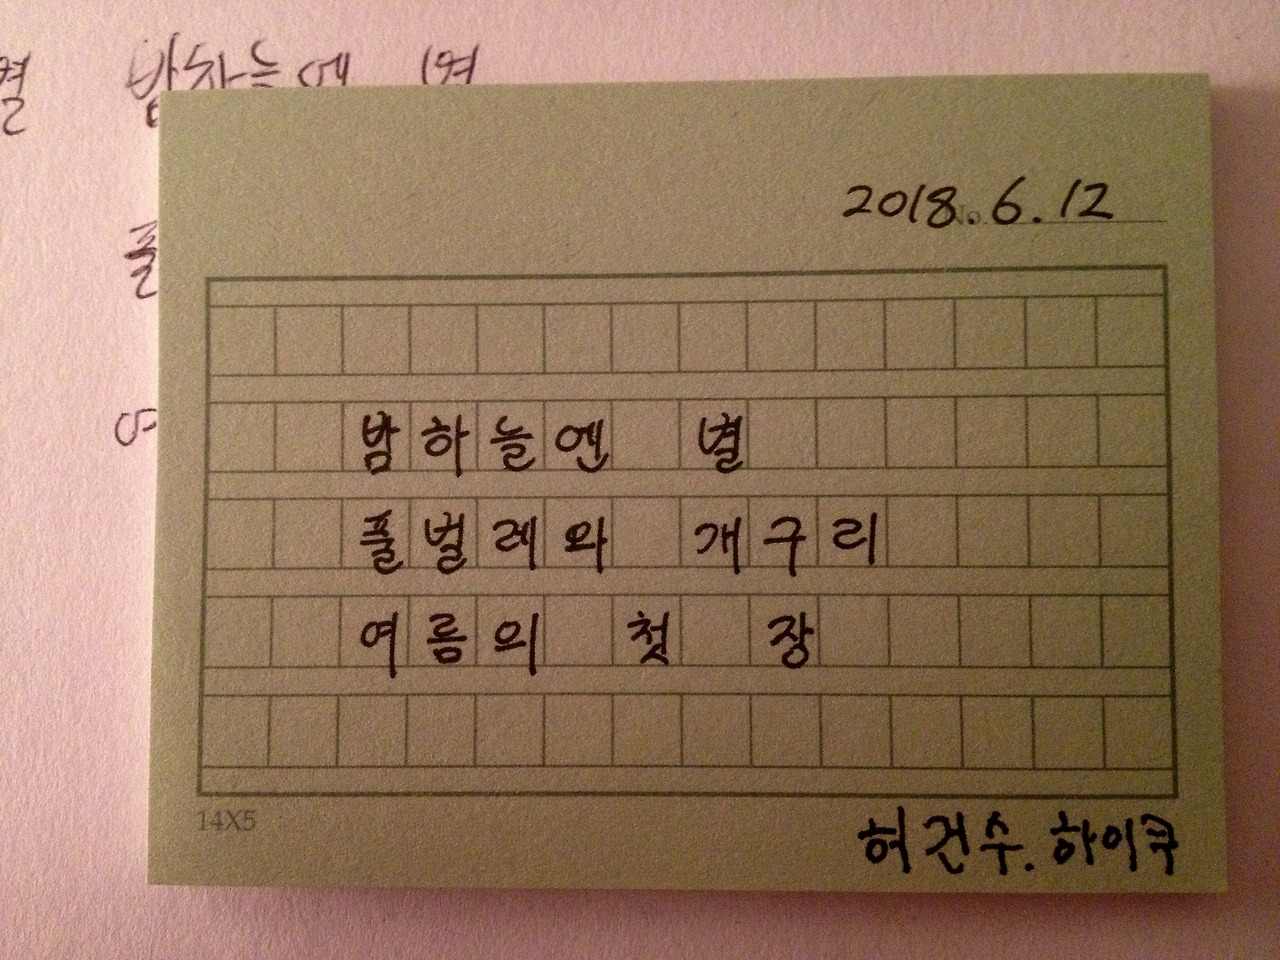 2018.6.12
밤하늘엔 별
풀벌레와 개구리
여름의 첫 장
14X5
허건수. 하이쿠